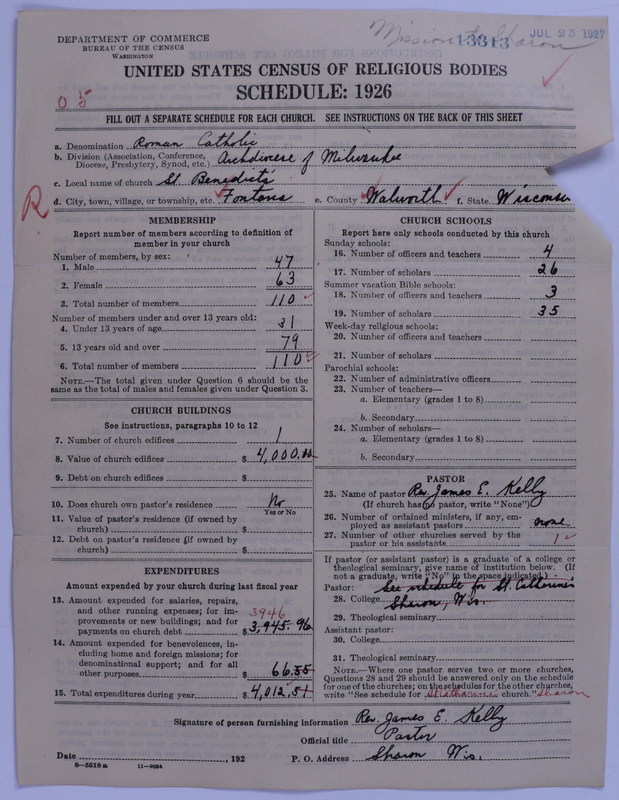 Mission to Sharon
13313
JUL 25 1927
DEPARTMENT OF COMMERCE
BUREAU OF THE CENSUS
WASHINGTON
UNITED STATES CENSUS OF RELIGIOUS BODIES
SCHEDULE: 1926
05
FILL OUT A SEPARATE SCHEDULE FOR EACH CHURCH. SEE INSTRUCTIONS ON THE BACK OF THIS SHEET
a. Denomination Roman Catholic
b. Division (Association, Conference, Diocese, Presbytery, Synod, etc.) Archdiocese of Milwaukee
c. Local name of church St. Benedict's
R
d. City, town, village, or township, etc. Fontana e. County Walworth f. State Wisconsin
MEMBERSHIP
Report number of members according to definition of
member in your church
Number of members, by sex:
1. Male 47
2. Female 63
3. Total number of members 110
Number of members under and over 13 years old:
4. Under 13 years of age 31
5. 13 years old and over 79
6. Total number of members 110
NOTE.—The total given under Question 6 should be the
same as the total of males and females given under Question 3.
CHURCH BUILDINGS
See instructions, paragraphs 10 to 12
7. Number of church edifices 1
8. Value of church edifices $ 4,000.00
9. Debt on church edifices $
10. Does church own pastor's residence No
Yes or No
11. Value of pastor's residence (if owned by
church) $
12. Debt on pastor's residence (if owned by
church) $
EXPENDITURES
Amount expended by your church during last fiscal year
13. Amount expended for salaries, repairs,
and other running expenses; for im-
provements or new buildings; and for
payments on church debt $ 3,945.96
3946
14. Amount expended for benevolences, in-
cluding home and foreign missions; for
denominational support; and for all
other purposes $ 66.55
15. Total expenditures during year $ 4,012.51
CHURCH SCHOOLS
Report here only schools conducted by this church
Sunday schools:
16. Number of officers and teachers 4
17. Number of scholars 26
Summer vacation Bible schools:
18. Number of officers and teachers 3
19. Number of scholars 35
Week-day religious schools:
20. Number of officers and teachers
21. Number of scholars
Parochial schools:
22. Number of administrative officers
23. Number of teachers—
a. Elementary (grades 1 to 8)
b. Secondary
24. Number of scholars—
a. Elementary (grades 1 to 8)
b. Secondary
PASTOR
25. Name of pastor Rev. James E. Kelly
(If church has no pastor, write "None")
26. Number of ordained ministers, if any, em-
ployed as assistant pastors none
27. Number of other churches served by the
pastor or his assistants 1
If pastor (or assistant pastor) is a graduate of a college or
theological seminary, give name of institution below. (If
not a graduate, write "No" in the space indicated.)
Pastor: See schedule for St. Catherine's
28. College Sharon, Wis.
29. Theological seminary
Assistant pastor:
30. College
31. Theological seminary
NOTE.—Where one pastor serves two or more churches,
Questions 28 and 29 should be answered only on the schedule
for one of the churches; on the schedules for the other churches,
write "See schedule for church." Sharon
Signature of person furnishing information Rev. James E. Kelly
Official title Pastor
Date , 192 P. O. Address Sharon Wis.
8-5518a 11-9034